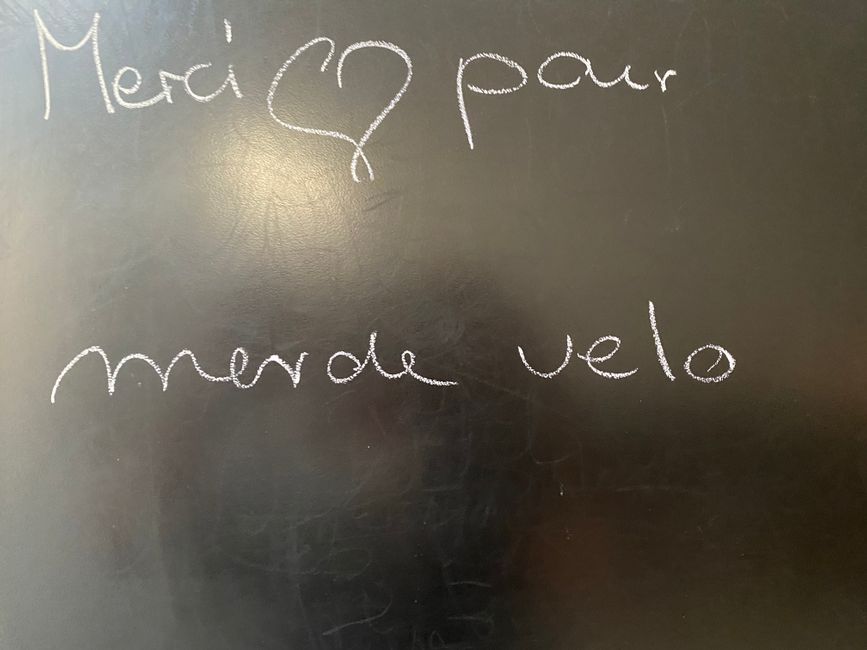 Merci ♡ pour
merde velo